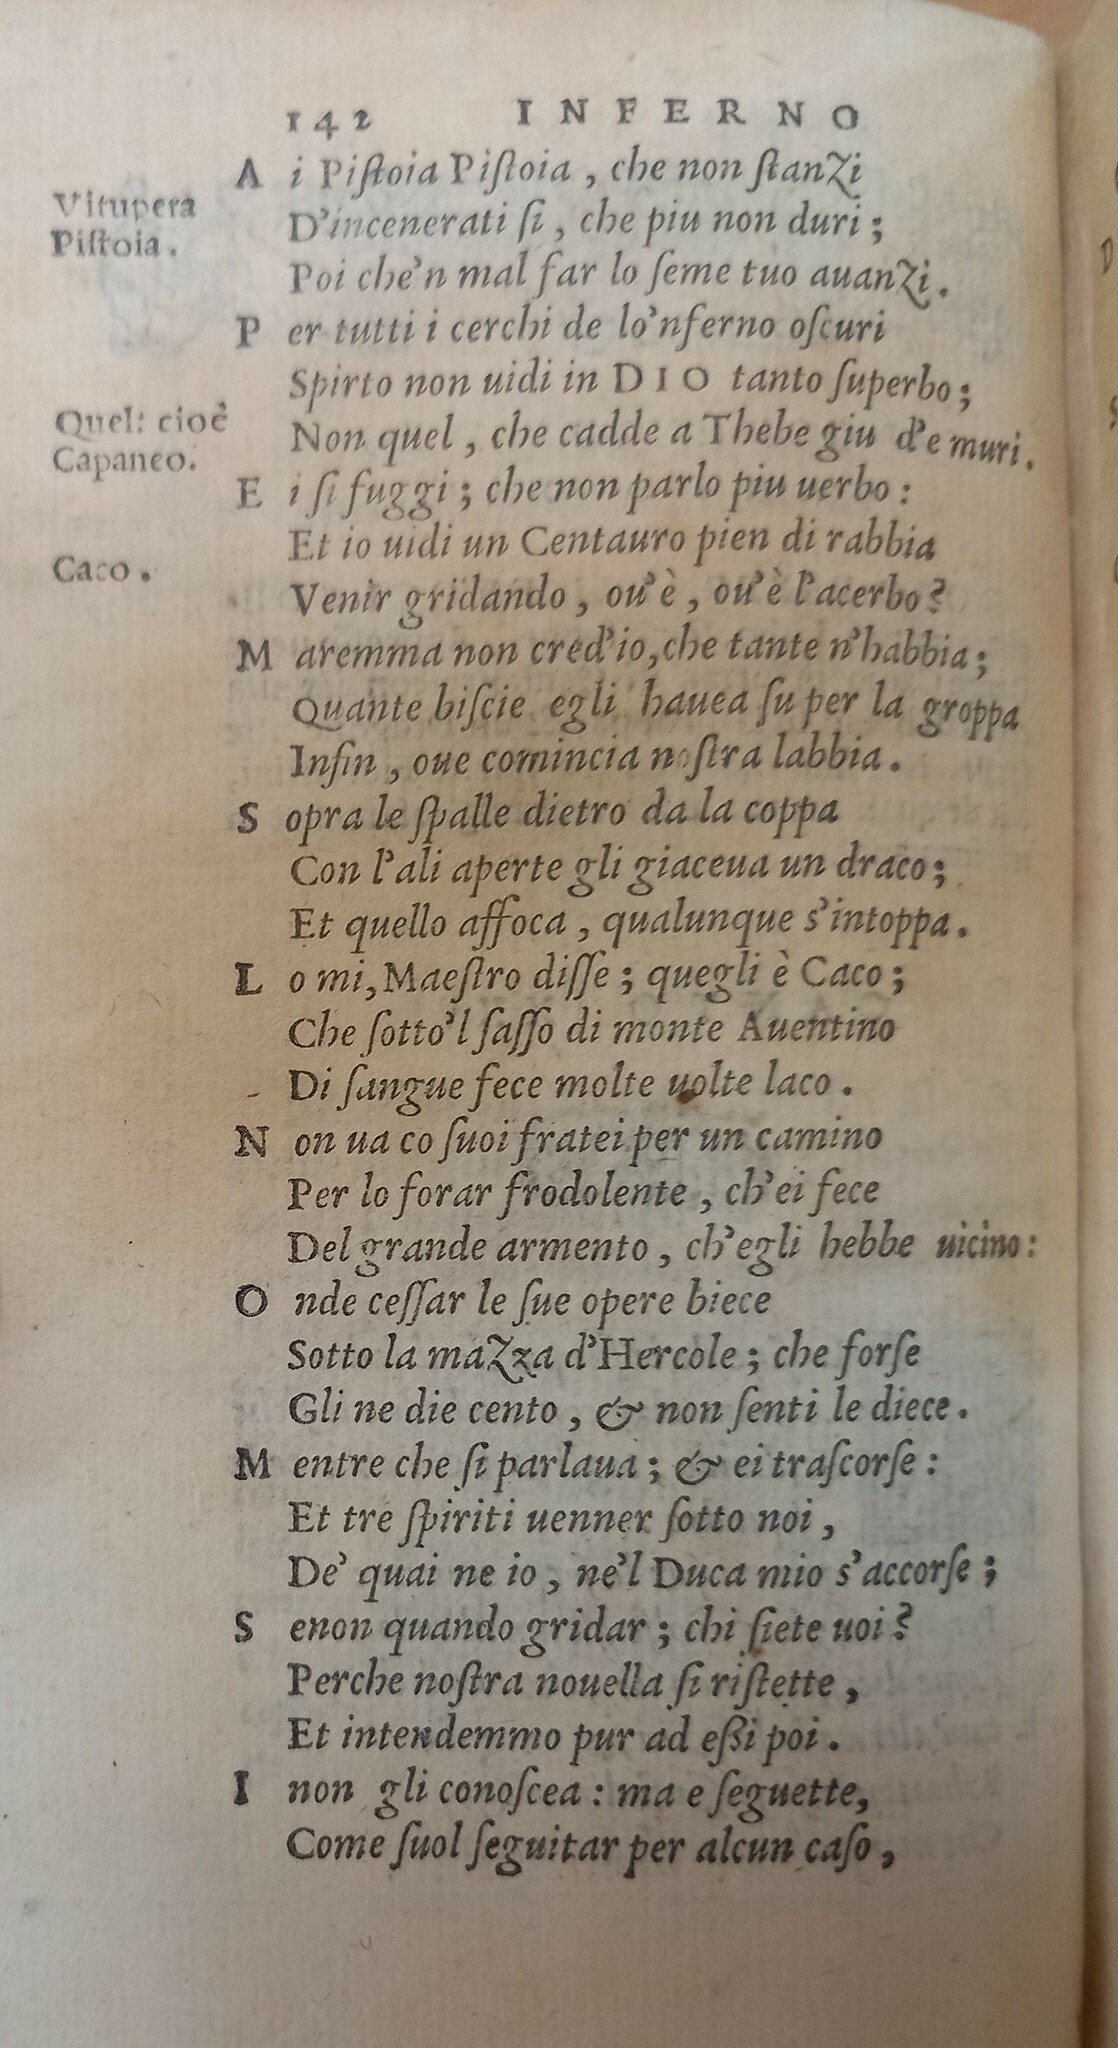 142 INFERNO
A i Piſtoia Piſtoia, che non ſtanzi
Vitupera
Piſtoia.
D'incenerati ſi, che piu non duri;
Poi che'n mal far lo ſeme tuo auanzi.
P er tutti i cerchi de lo'nferno oſcuri
Spirto non uidi in DIO tanto ſuperbo;
Quel: cioè
Capaneo.
Non quel, che cadde a Thebe giu d'e muri.
E i ſi fuggi; che non parlo piu uerbo:
Et io uidi un Centauro pien di rabbia
Caco.
Venir gridando, ou'è, ou'è l'acerbo?
M aremma non cred'io, che tante n'habbia;
Quante biſcie egli hauea ſu per la groppa
Infin, oue comincia noſtra labbia.
S opra le ſpalle dietro da la coppa
Con l'ali aperte gli giaceua un draco;
Et quello affoca, qualunque s'intoppa.
L o mi, Maeſtro diſſe; quegli è Caco;
Che ſotto'l ſaſſo di monte Auentino
Di ſangue fece molte uolte laco.
N on ua co ſuoi fratei per un camino
Per lo forar frodolente, ch'ei fece
Del grande armento, ch'egli hebbe uicino:
O nde ceſſar le ſue opere biece
Sotto la mazza d'Hercole; che forſe
Gli ne die cento, & non ſenti le diece.
M entre che ſi parlaua; & ei traſcorſe:
Et tre ſpiriti uenner ſotto noi,
De' quai ne io, ne'l Duca mio s'accorſe;
S enon quando gridar; chi ſiete uoi?
Perche noſtra nouella ſi riſtette,
Et intendemmo pur ad eßi poi.
I non gli conoſcea: ma e ſeguette,
Come ſuol ſeguitar per alcun caſo,